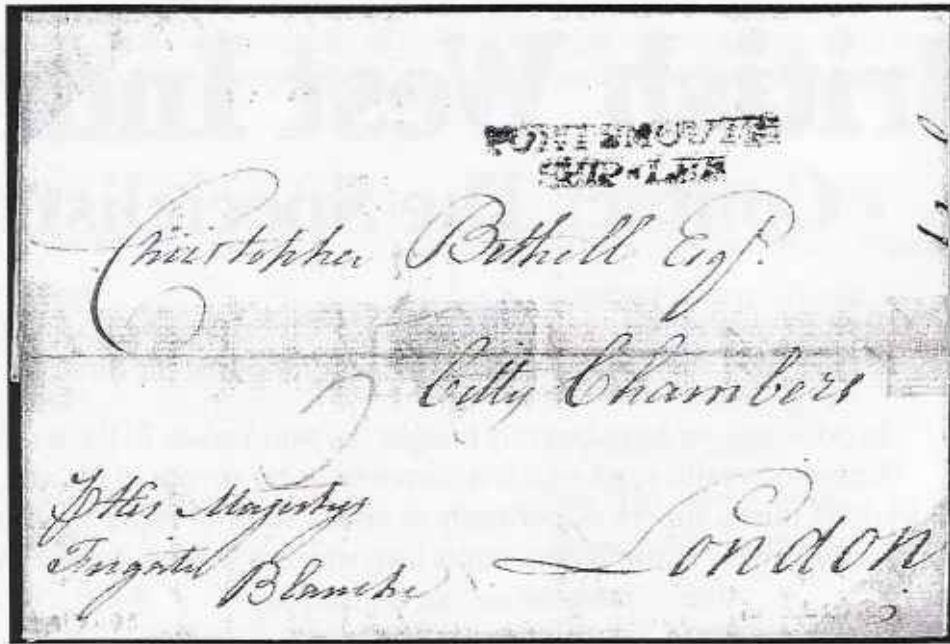 PORTSMOUTH
SHIP-LRE
Christopher Bethell Esqr.
Citty Chambers
London
His Majestys
Frigate
Blanche